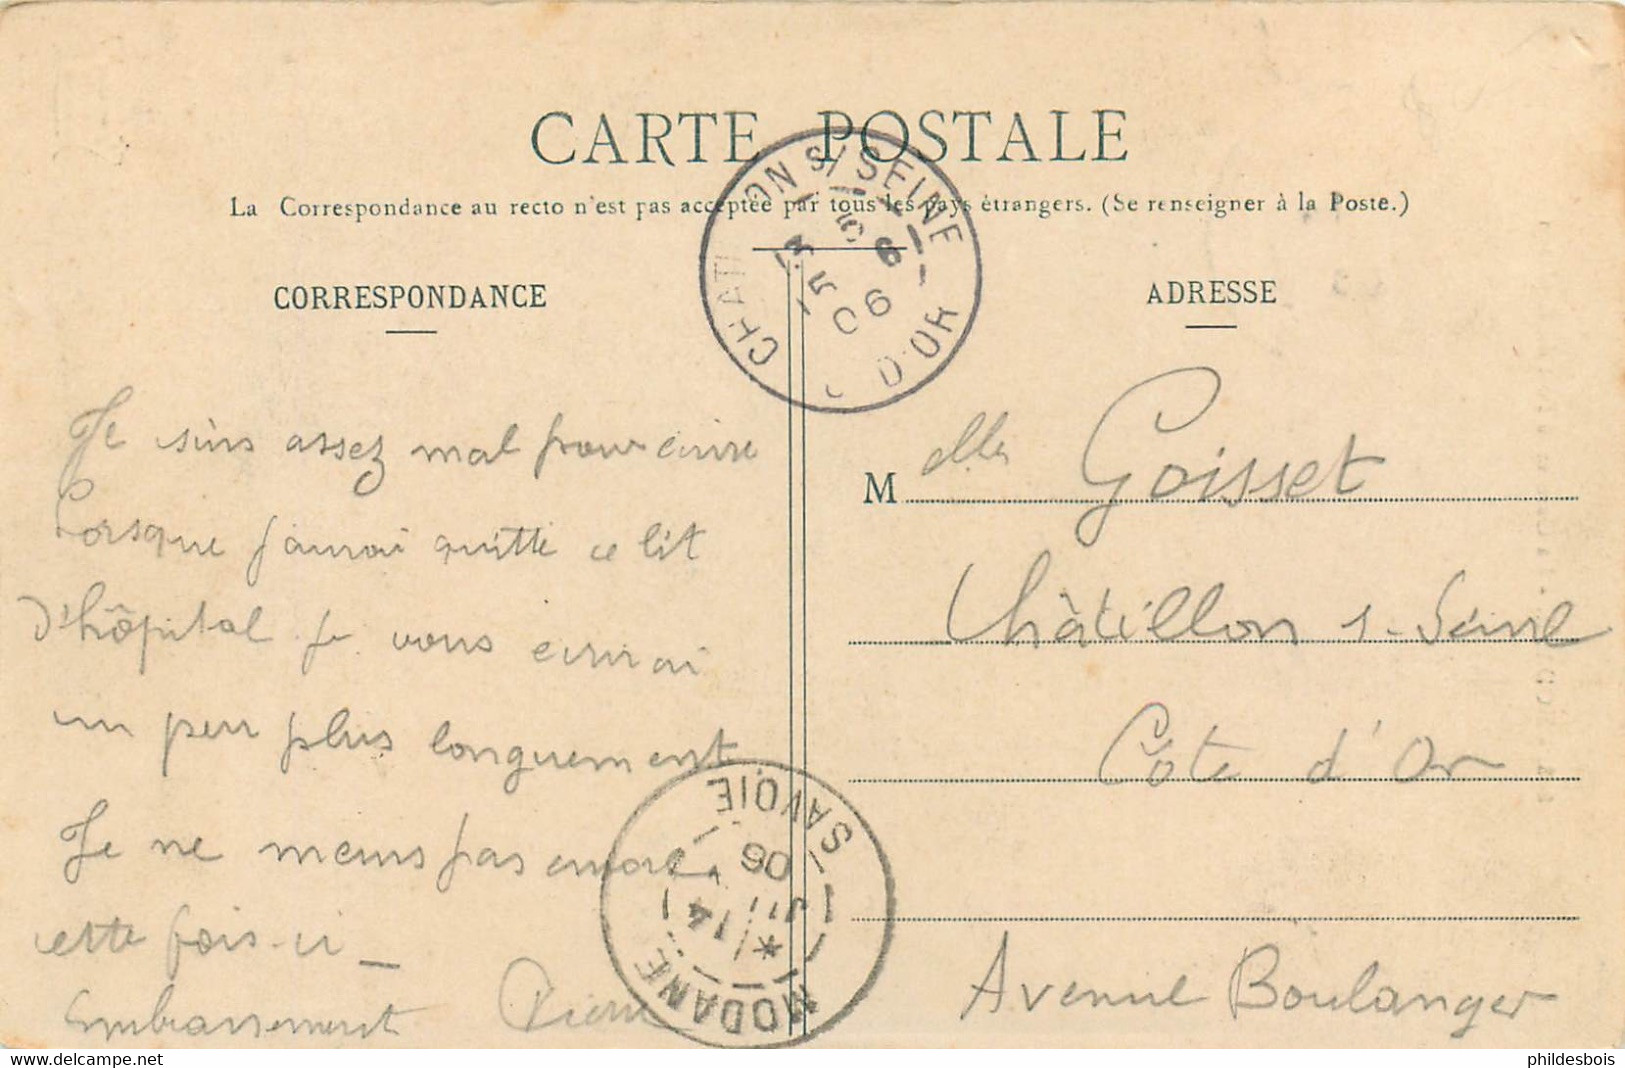 CARTE POSTALE
La Correspondance au recto n'est pas acceptée par tous les pays étrangers. (Se renseigner à la Poste.)
CORRESPONDANCE
Je suis assez mal pour écrire
Lorsque j'aurai quitté ce lit
d'hôpital je vous écrirai
un peu plus longuement
Je ne meurs pas encore
cette fois-ci _
Embrassement Pierre
ADRESSE
M elle Goisset
Châtillon s-Seine
Côte d'Or
Avenue Boulanger
CHAT ON S/SEINE
D'OR
5 06
MODANE
SAVOIE
14
06
phildesbois